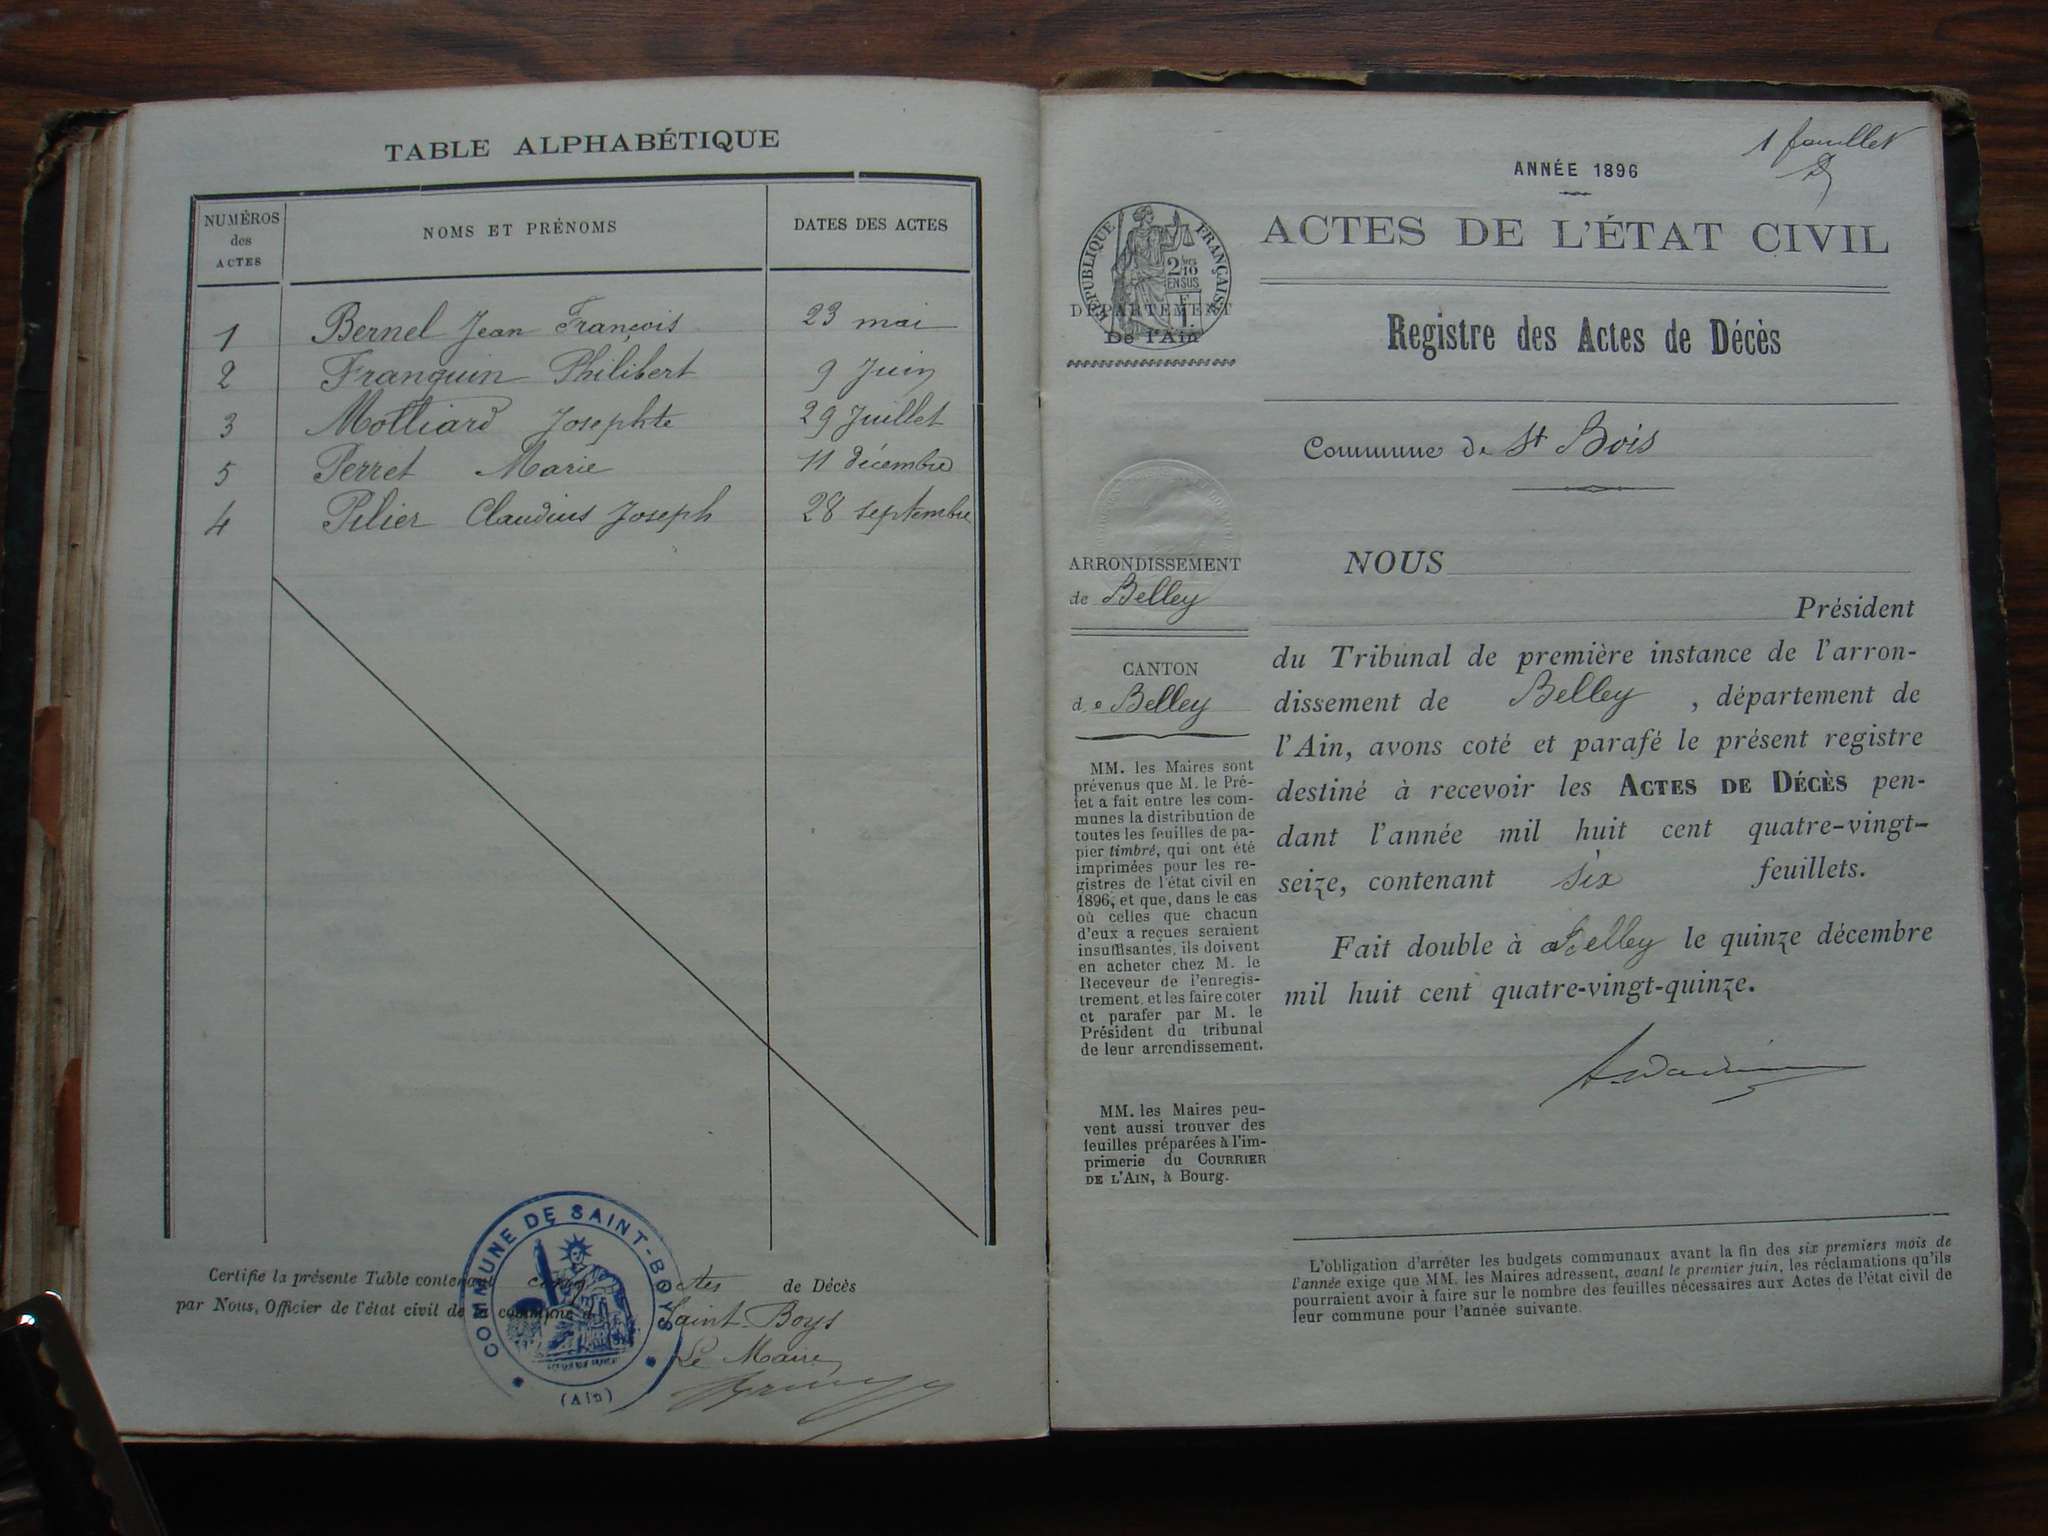 TABLE ALPHABÉTIQUE
NUMÉROS
des
ACTES
NOMS ET PRÉNOMS
DATES DES ACTES
1 Bernel Jean François 23 mai
2 Franquin Philibert 9 Juin
3 Molliard Josephte 29 Juillet
5 Perret Marie 11 décembre
4 Pilier Claudius Joseph 28 septembre
Certifie la présente Table contenant cinq actes de Décès
par Nous, Officier de l'état civil de la commune de Saint-Boys
Le Maire
COMMUNE DE SAINT-BOYS
(Ain)
1 feuillet
ANNÉE 1896
ACTES DE L'ÉTAT CIVIL
RÉPUBLIQUE FRANÇAISE
2/10
EN SUS
DÉPARTEMENT
De l'Ain
Registre des Actes de Décès
Commune de St Bois
ARRONDISSEMENT
de Belley
CANTON
de Belley
MM. les Maires sont
prévenus que M. le Pré-
fet a fait entre les com-
munes la distribution de
toutes les feuilles de pa-
pier timbré, qui ont été
imprimées pour les re-
gistres de l'état civil en
1896, et que, dans le cas
où celles que chacun
d'eux a reçues seraient
insuffisantes, ils doivent
en acheter chez M. le
Receveur de l'enregis-
trement, et les faire coter
et parafer par M. le
Président du tribunal
de leur arrondissement.
MM. les Maires peu-
vent aussi trouver des
feuilles préparées à l'im-
primerie du COURRIER
DE L'AIN, à Bourg.
NOUS
Président
du Tribunal de première instance de l'arron-
dissement de Belley, département de
l'Ain, avons coté et parafé le présent registre
destiné à recevoir les ACTES DE DÉCÈS pen-
dant l'année mil huit cent quatre-vingt-
seize, contenant six feuillets.
Fait double à Belley le quinze décembre
mil huit cent quatre-vingt-quinze.
L'obligation d'arrêter les budgets communaux avant la fin des six premiers mois de
l'année exige que MM. les Maires adressent, avant le premier juin, les réclamations qu'ils
pourraient avoir à faire sur le nombre des feuilles nécessaires aux Actes de l'état civil de
leur commune pour l'année suivante.